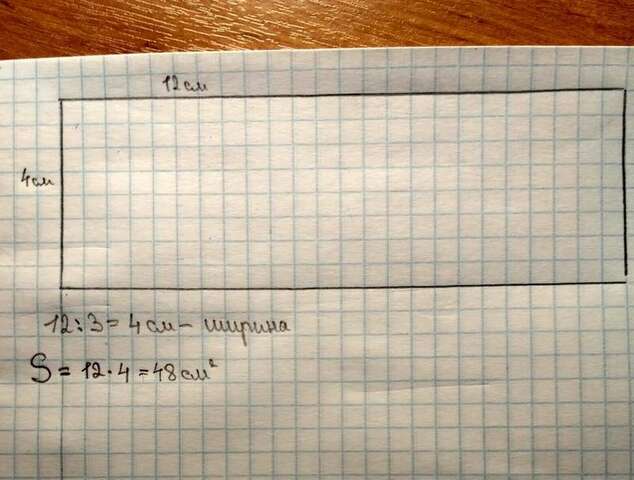 12см
4см
12:3=4см- ширина
S = 12·4=48см²